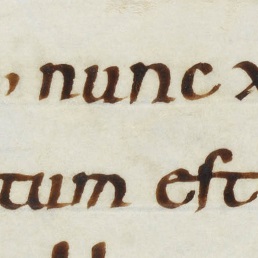 nunc
tum est